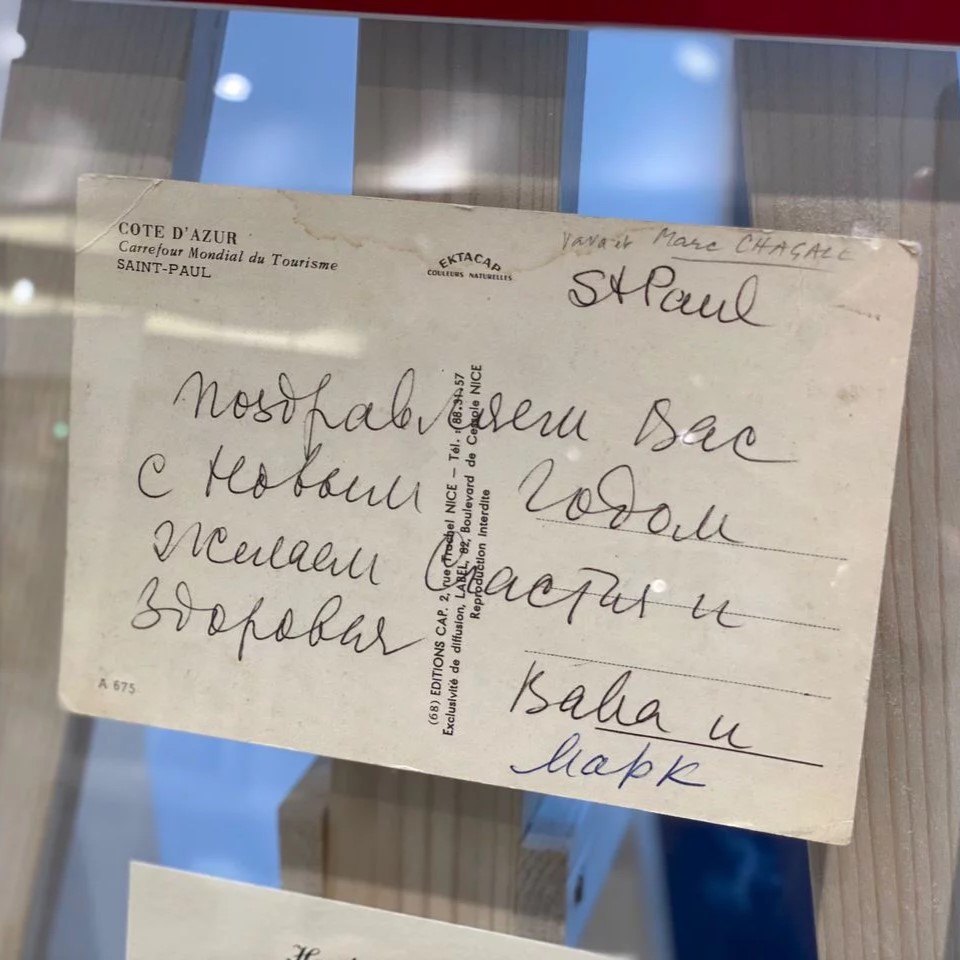 COTE D'AZUR
Carrefour Mondial du Tourisme
SAINT-PAUL
EKTACAP
COULEURS NATURELLES
Marc CHAGALL
St Paul
Поздравляем Вас
с Новым Годом
Желаем Счастия и
Здоровья
Вава и
Марк
A 675
(68) EDITIONS CAP. 2, rue Trachel NICE — Tél. : 88.31.57
Exclusivité de diffusion, LABEL, 82, Boulevard de Cessole NICE
Reproduction Interdite